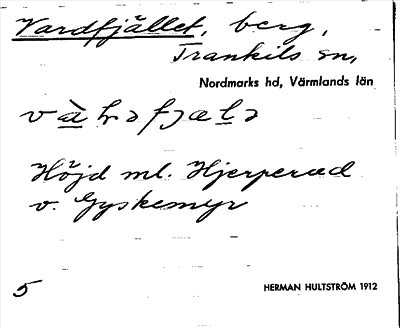 Vardfjället, berg,
Trankils sn,
Nordmarks hd, Värmlands län
Höjd ml. Hjerperud
o. Gyskemyr
5
HERMAN HULTSTRÖM 1912